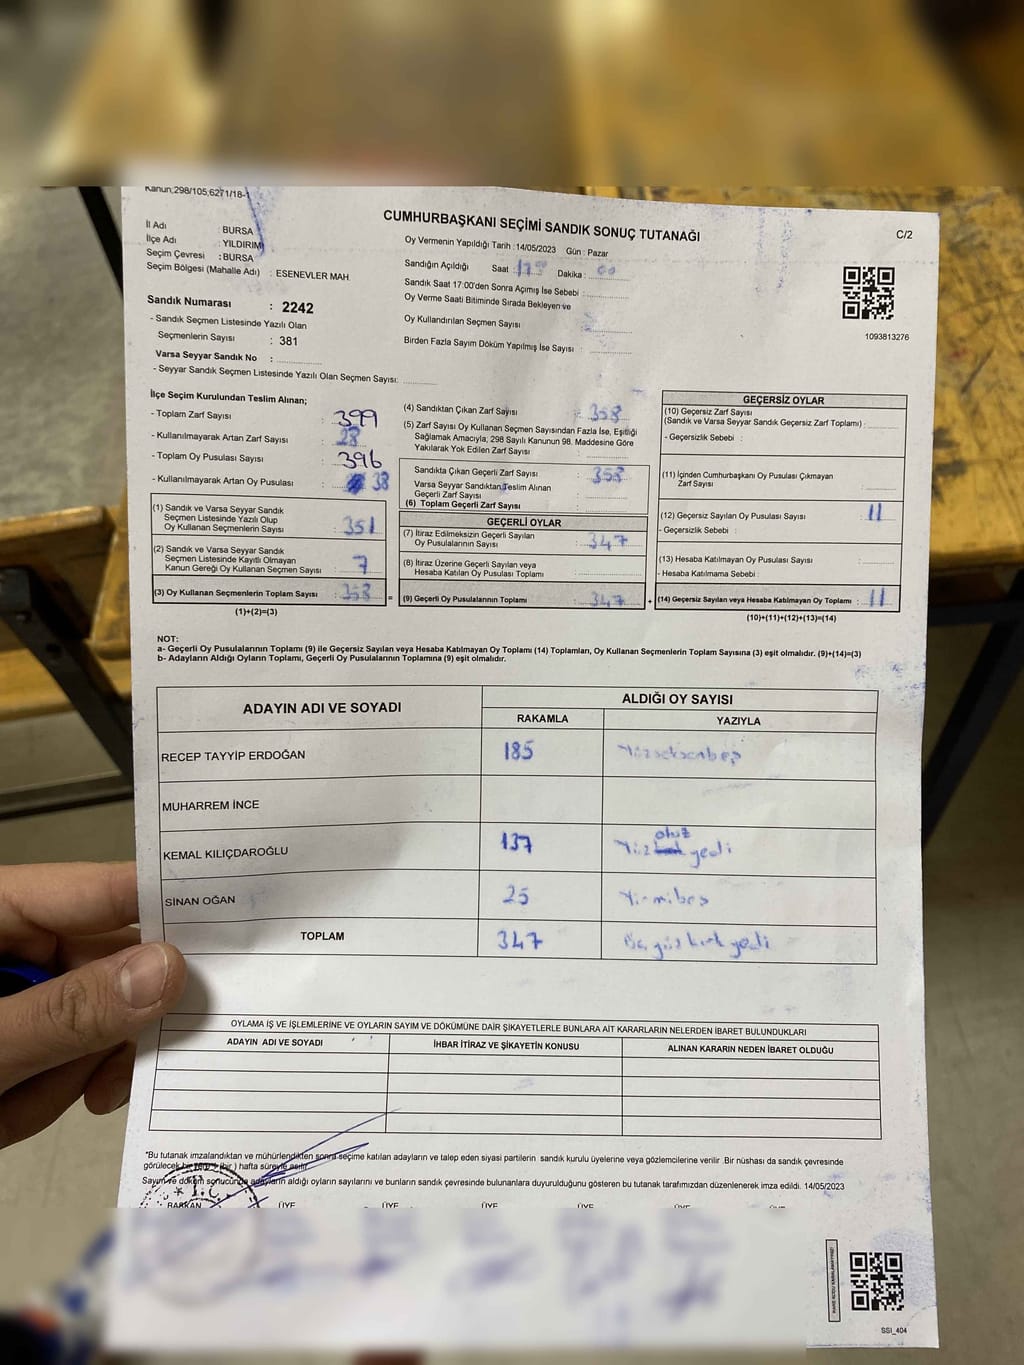 Kanun;298/105;6271/18-1
CUMHURBAŞKANI SEÇİMİ SANDIK SONUÇ TUTANAĞI
C/2
İl Adı : BURSA
İlçe Adı : YILDIRIM
Seçim Çevresi : BURSA
Seçim Bölgesi (Mahalle Adı) : ESENEVLER MAH.
Sandık Numarası : 2242
- Sandık Seçmen Listesinde Yazılı Olan
Seçmenlerin Sayısı : 381
Varsa Seyyar Sandık No :
- Seyyar Sandık Seçmen Listesinde Yazılı Olan Seçmen Sayısı:
Oy Vermenin Yapıldığı Tarih :14/05/2023 Gün : Pazar
Sandığın Açıldığı Saat : Dakika : 00
Sandık Saat 17:00'den Sonra Açımış İse Sebebi :
Oy Verme Saati Bitiminde Sırada Bekleyen ve
Oy Kullandırılan Seçmen Sayısı :
Birden Fazla Sayım Döküm Yapılmış İse Sayısı :
1093813276
İlçe Seçim Kurulundan Teslim Alınan;
- Toplam Zarf Sayısı : 399
- Kullanılmayarak Artan Zarf Sayısı : 28
- Toplam Oy Pusulası Sayısı : 396
- Kullanılmayarak Artan Oy Pusulası : 38
(1) Sandık ve Varsa Seyyar Sandık
Seçmen Listesinde Yazılı Olup
Oy Kullanan Seçmenlerin Sayısı : 351
(2) Sandık ve Varsa Seyyar Sandık
Seçmen Listesinde Kayıtlı Olmayan
Kanun Gereği Oy Kullanan Seçmen Sayısı : 7
(3) Oy Kullanan Seçmenlerin Toplam Sayısı : 358 =
(1)+(2)=(3)
(4) Sandıktan Çıkan Zarf Sayısı : 358
(5) Zarf Sayısı Oy Kullanan Seçmen Sayısından Fazla İse, Eşitliği
Sağlamak Amacıyla; 298 Sayılı Kanunun 98. Maddesine Göre
Yakılarak Yok Edilen Zarf Sayısı :
Sandıkta Çıkan Geçerli Zarf Sayısı : 358
Varsa Seyyar Sandıktan Teslim Alınan
Geçerli Zarf Sayısı :
(6) Toplam Geçerli Zarf Sayısı :
GEÇERLİ OYLAR
(7) İtiraz Edilmeksizin Geçerli Sayılan
Oy Pusulalarının Sayısı : 347
(8) İtiraz Üzerine Geçerli Sayılan veya
Hesaba Katılan Oy Pusulası Toplamı :
(9) Geçerli Oy Pusulalarının Toplamı : 347 +
GEÇERSİZ OYLAR
(10) Geçersiz Zarf Sayısı
(Sandık ve Varsa Seyyar Sandık Geçersiz Zarf Toplamı) :
- Geçersizlik Sebebi :
(11) İçinden Cumhurbaşkanı Oy Pusulası Çıkmayan
Zarf Sayısı :
(12) Geçersiz Sayılan Oy Pusulası Sayısı : 11
- Geçersizlik Sebebi :
(13) Hesaba Katılmayan Oy Pusulası Sayısı :
- Hesaba Katılmama Sebebi :
(14) Geçersiz Sayılan veya Hesaba Katılmayan Oy Toplamı : 11
(10)+(11)+(12)+(13)=(14)
NOT:
a- Geçerli Oy Pusulalarının Toplamı (9) ile Geçersiz Sayılan veya Hesaba Katılmayan Oy Toplamı (14) Toplamları, Oy Kullanan Seçmenlerin Toplam Sayısına (3) eşit olmalıdır. (9)+(14)=(3)
b- Adayların Aldığı Oyların Toplamı, Geçerli Oy Pusulalarının Toplamına (9) eşit olmalıdır.
ADAYIN ADI VE SOYADI
ALDIĞI OY SAYISI
RAKAMLA YAZIYLA
RECEP TAYYİP ERDOĞAN 185 Yüzseksenbeş
MUHARREM İNCE
KEMAL KILIÇDAROĞLU 137 Yüz otuz yedi
SİNAN OĞAN 25 Yirmibeş
TOPLAM 347 Üç yüz kırk yedi
OYLAMA İŞ VE İŞLEMLERİNE VE OYLARIN SAYIM VE DÖKÜMÜNE DAİR ŞİKAYETLERLE BUNLARA AİT KARARLARIN NELERDEN İBARET BULUNDUKLARI
ADAYIN ADI VE SOYADI İHBAR İTİRAZ VE ŞİKAYETİN KONUSU ALINAN KARARIN NEDEN İBARET OLDUĞU
*Bu tutanak imzalandıktan ve mühürlendikten sonra seçime katılan adayların ve talep eden siyasi partilerin sandık kurulu üyelerine veya gözlemcilerine verilir .Bir nüshası da sandık çevresinde
görülecek bir yere 1 (bir ) hafta süreyle asılır.
Sayım ve döküm sonucunda adayların aldığı oyların sayılarını ve bunların sandık çevresinde bulunanlara duyurulduğunu gösteren bu tutanak tarafımızdan düzenlenerek imza edildi. 14/05/2023
T.C.
BAŞKAN ÜYE ÜYE ÜYE ÜYE ÜYE ÜYE
SSI_404